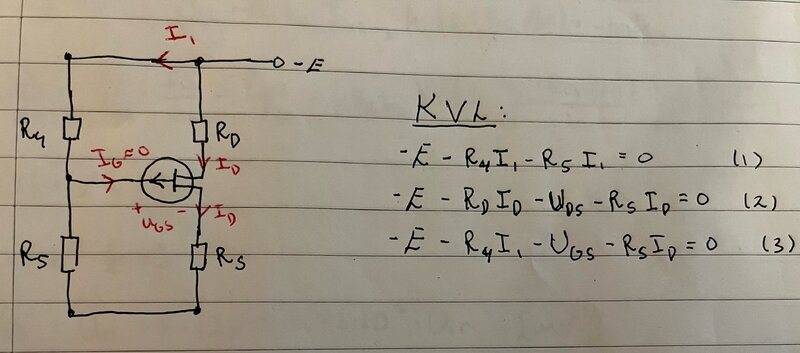 I₁
-E
R₄
R_D
I_G=0
I_D
+ U_GS -
I_D
R₅
R_S
KVL:
-E - R₄I₁ - R₅I₁ = 0 (1)
-E - R_D I_D - U_DS - R_S I_D = 0 (2)
-E - R₄I₁ - U_GS - R_S I_D = 0 (3)